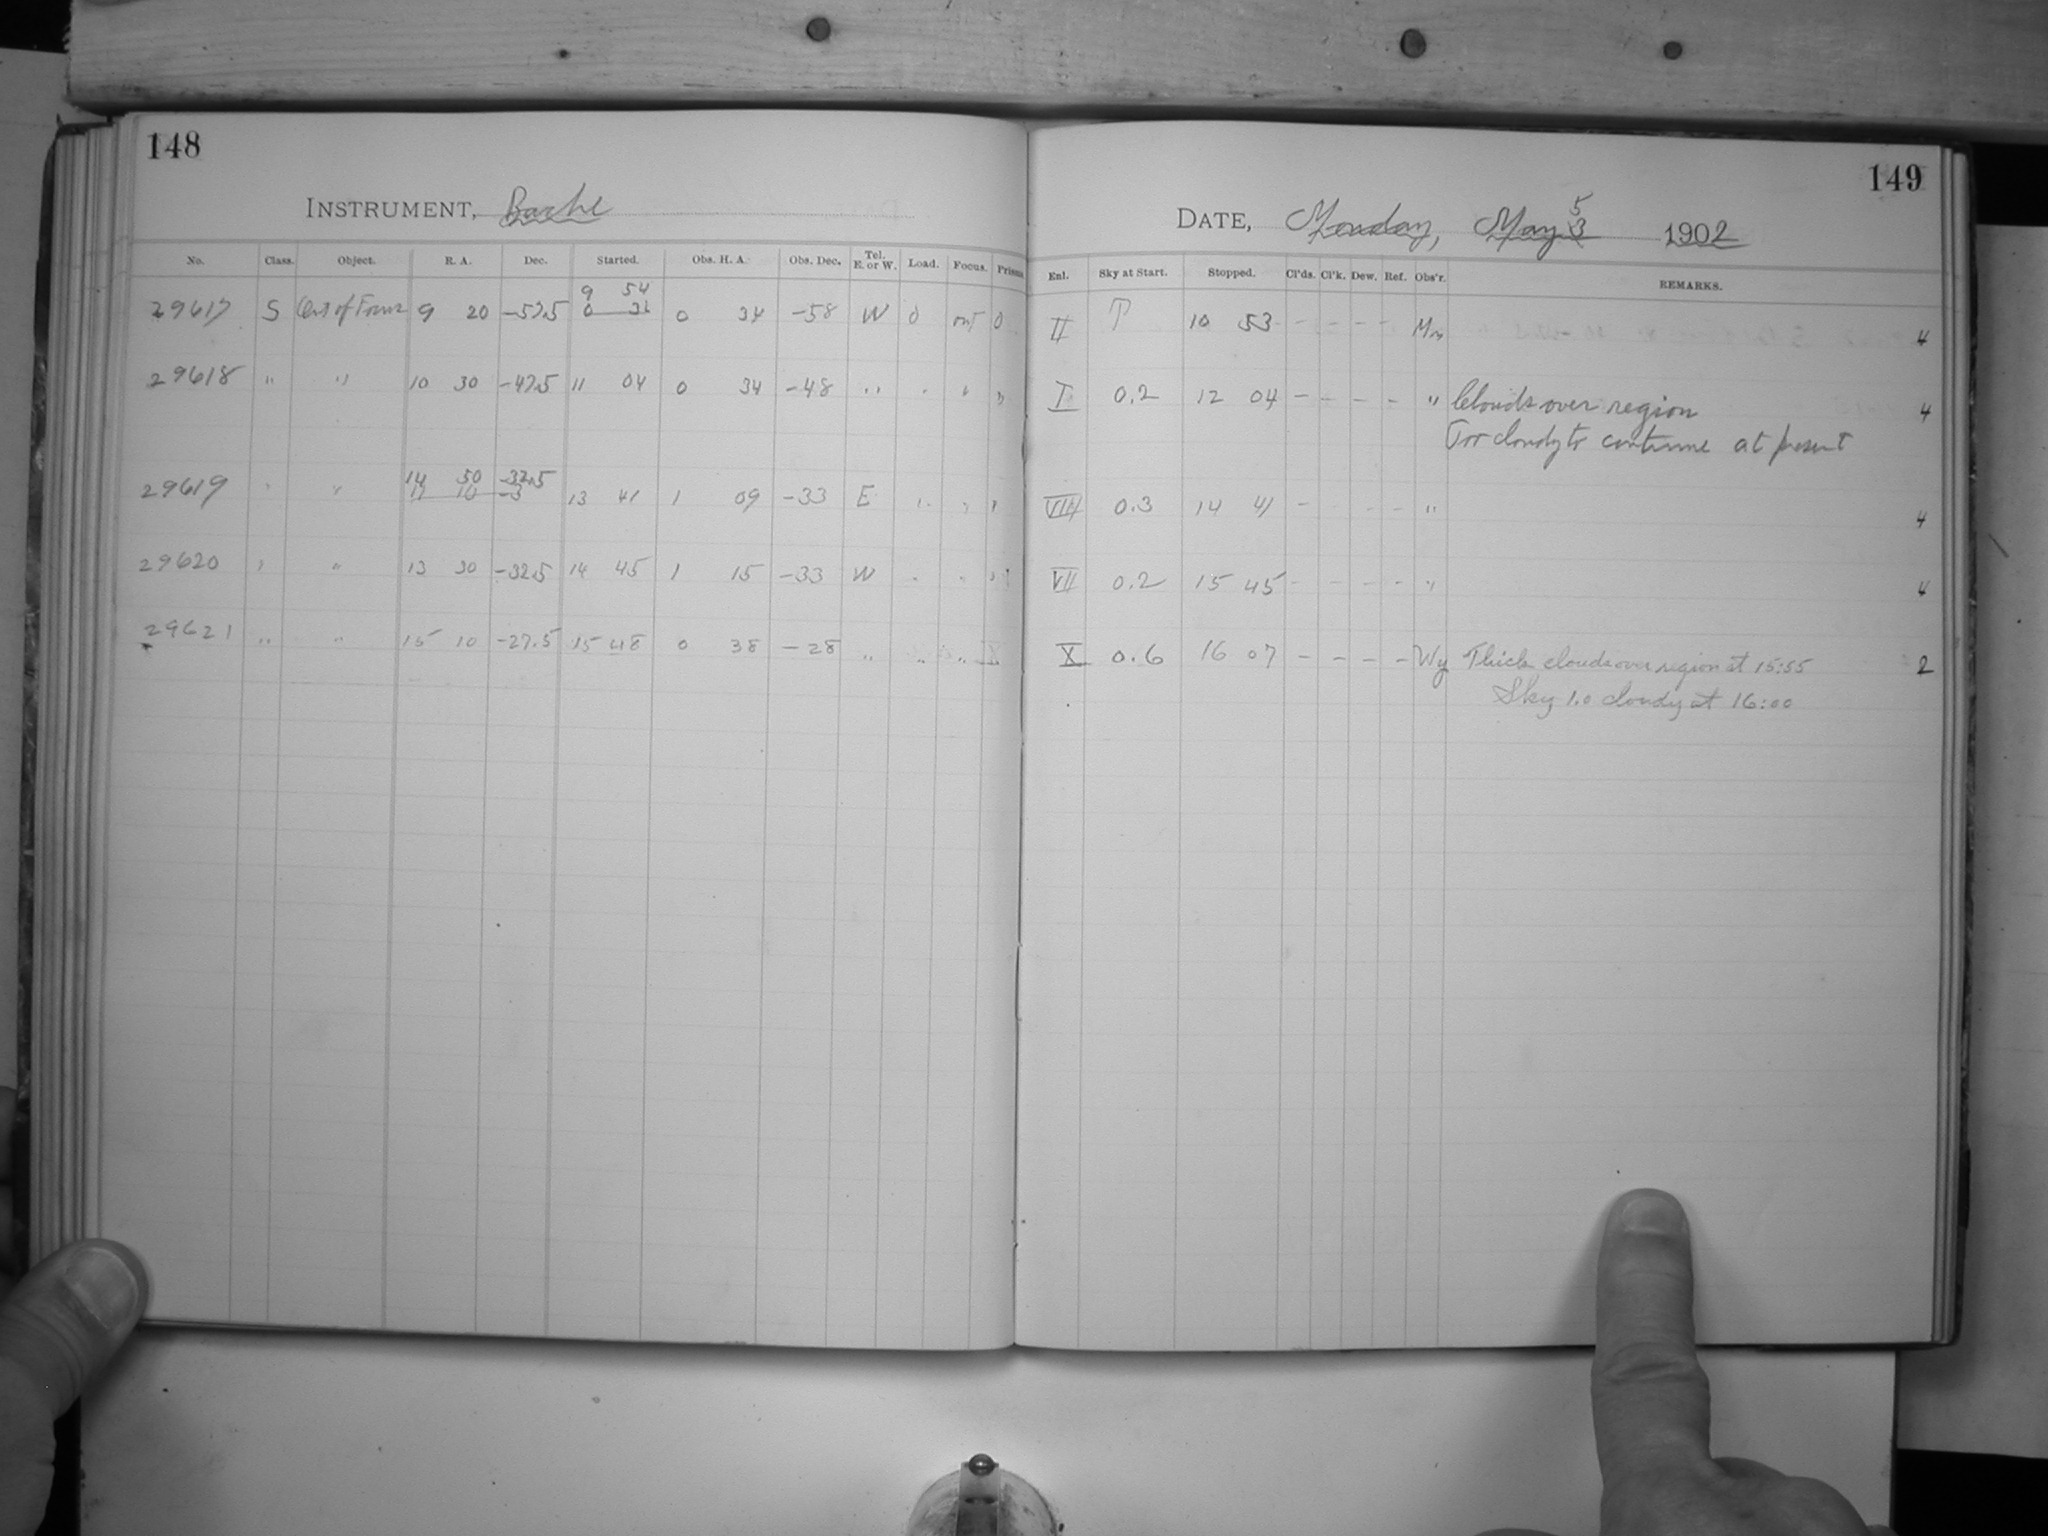 148
INSTRUMENT, Bache
No. Class. Object. R. A. Dec. Started. Obs. H. A. Obs. Dec. Tel. E. or W. Load. Focus. Prisms
9 54
29617 S Out of Focus 9 20 -57.5 0 31 0 34 -58 W 0 out 0
29618 " " 10 30 -47.5 11 04 0 34 -48 " " " "
14 50 -32.5
29619 " " 11 10 -3 13 41 1 09 -33 E " " "
29620 " " 13 30 -32.5 14 45 1 15 -33 W " " "
29621 " " 15 10 -27.5 15 48 0 38 -28 " " "
149
5
DATE, Monday, May 3 1902
Enl. Sky at Start. Stopped. Cl'ds. Cl'k. Dew. Ref. Obs'r. REMARKS.
II ↑ 10 53 - - - - 4
I 0.2 12 04 - - - - " Clouds over region 4
Too cloudy to continue at present
VIII 0.3 14 41 - - - - " 4
VII 0.2 15 45 - - - - " 4
X 0.6 16 07 - - - - Wy Thick clouds over region at 15:55 2
Sky 1.0 cloudy at 16:00